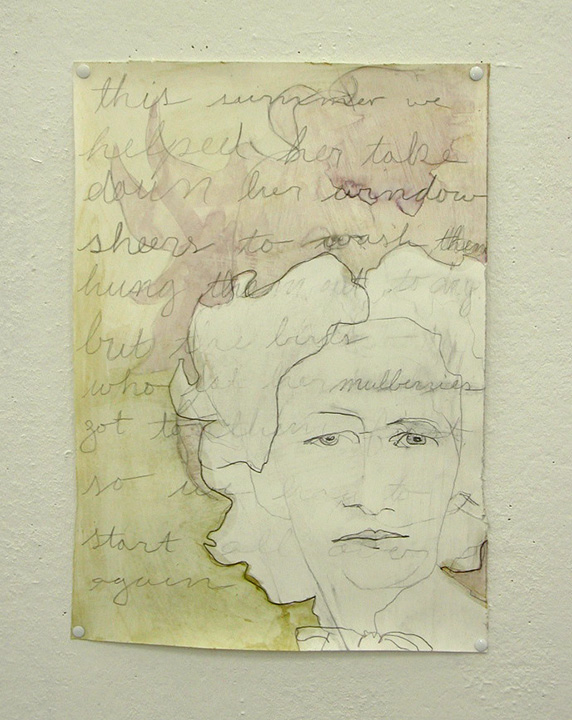 this summer we
helped her take
down her window
sheers to wash them
hung them out to dry
but the birds
who her mulberries
got to them
so we had to
start all over
again